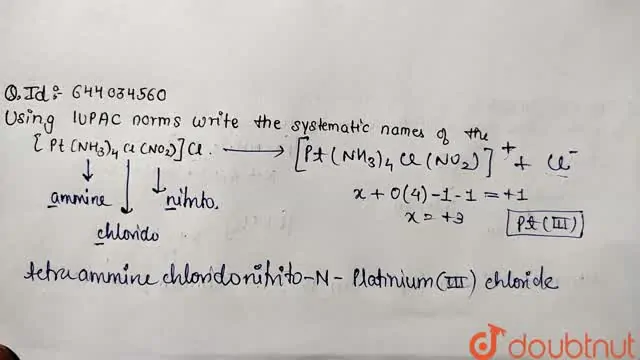 Q.Id:- 644034560
Using IUPAC norms write the systematic names of the
[Pt(NH3)4Cl(NO2)]Cl. ⟶ [Pt(NH3)4Cl(NO2)]+ + Cl-
ammine nitrito.
chlorido
x+0(4)-1-1=+1
x=+3
Pt(III)
tetraammine chloridonitrito-N-Platinium(III) chloride
doubtnut